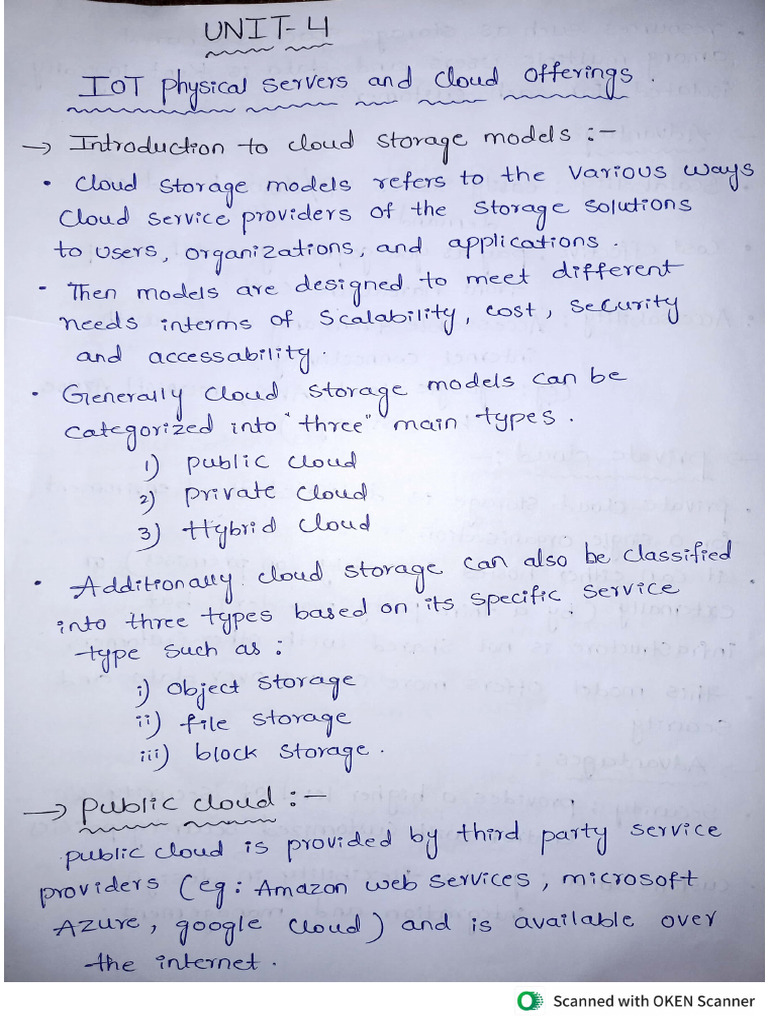 UNIT-4
IOT Physical Servers and Cloud Offerings.
→ Introduction to cloud storage models :-
• Cloud storage models refers to the various ways
Cloud service providers of the storage solutions
to users, organizations, and applications.
• Then models are designed to meet different
needs interms of scalability, cost, security
and accessability.
• Generally cloud storage models can be
categorized into "three" main types.
1) public cloud
2) private cloud
3) Hybrid cloud
• Additionally cloud storage can also be classified
into three types based on its specific service
type such as :
i) Object storage
ii) file storage
iii) block storage.
→ public cloud :-
public cloud is provided by third party service
providers (eg: Amazon web services, microsoft
Azure, google cloud) and is available over
the internet.
Scanned with OKEN Scanner